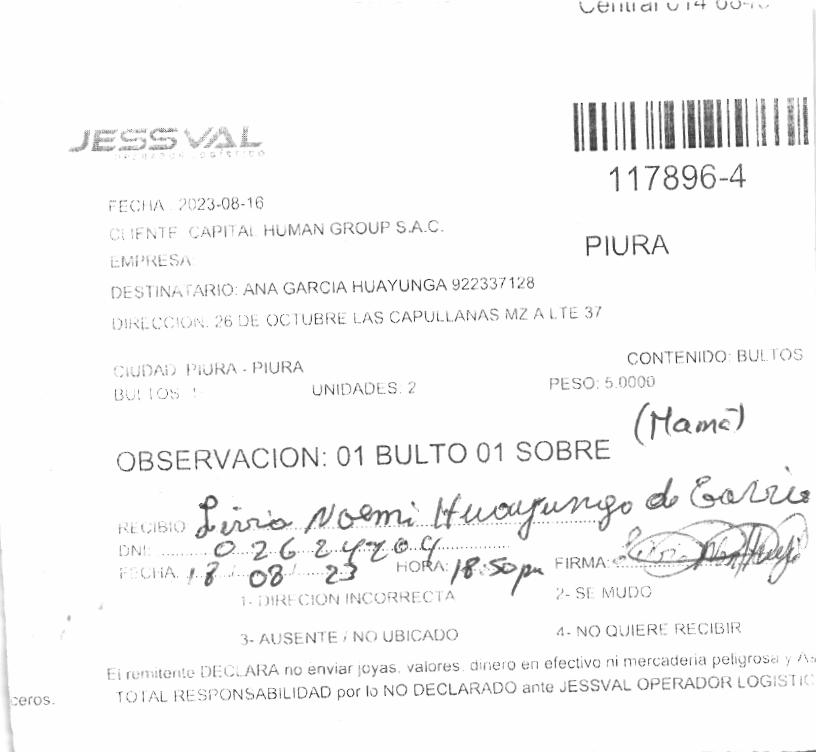 Central 014
JESSVAL
117896-4
FECHA: 2023-08-16
CLIENTE: CAPITAL HUMAN GROUP S.A.C.
PIURA
EMPRESA:
DESTINATARIO: ANA GARCIA HUAYUNGA 922337128
DIRECCION: 26 DE OCTUBRE LAS CAPULLANAS MZ A LTE 37
CIUDAD: PIURA - PIURA
CONTENIDO: BULTOS
BULTOS: UNIDADES: 2 PESO: 5.0000
(Mamá)
OBSERVACION: 01 BULTO 01 SOBRE
RECIBIO Livia Noemi Huayunga de García
DNI:
FECHA: 18/08/23 HORA: 18:50 pm FIRMA:
1- DIRECION INCORRECTA 2- SE MUDO
3- AUSENTE / NO UBICADO 4- NO QUIERE RECIBIR
El remitente DECLARA no enviar joyas, valores, dinero en efectivo ni mercaderia peligrosa y
ceros. TOTAL RESPONSABILIDAD por lo NO DECLARADO ante JESSVAL OPERADOR LOGISTIC